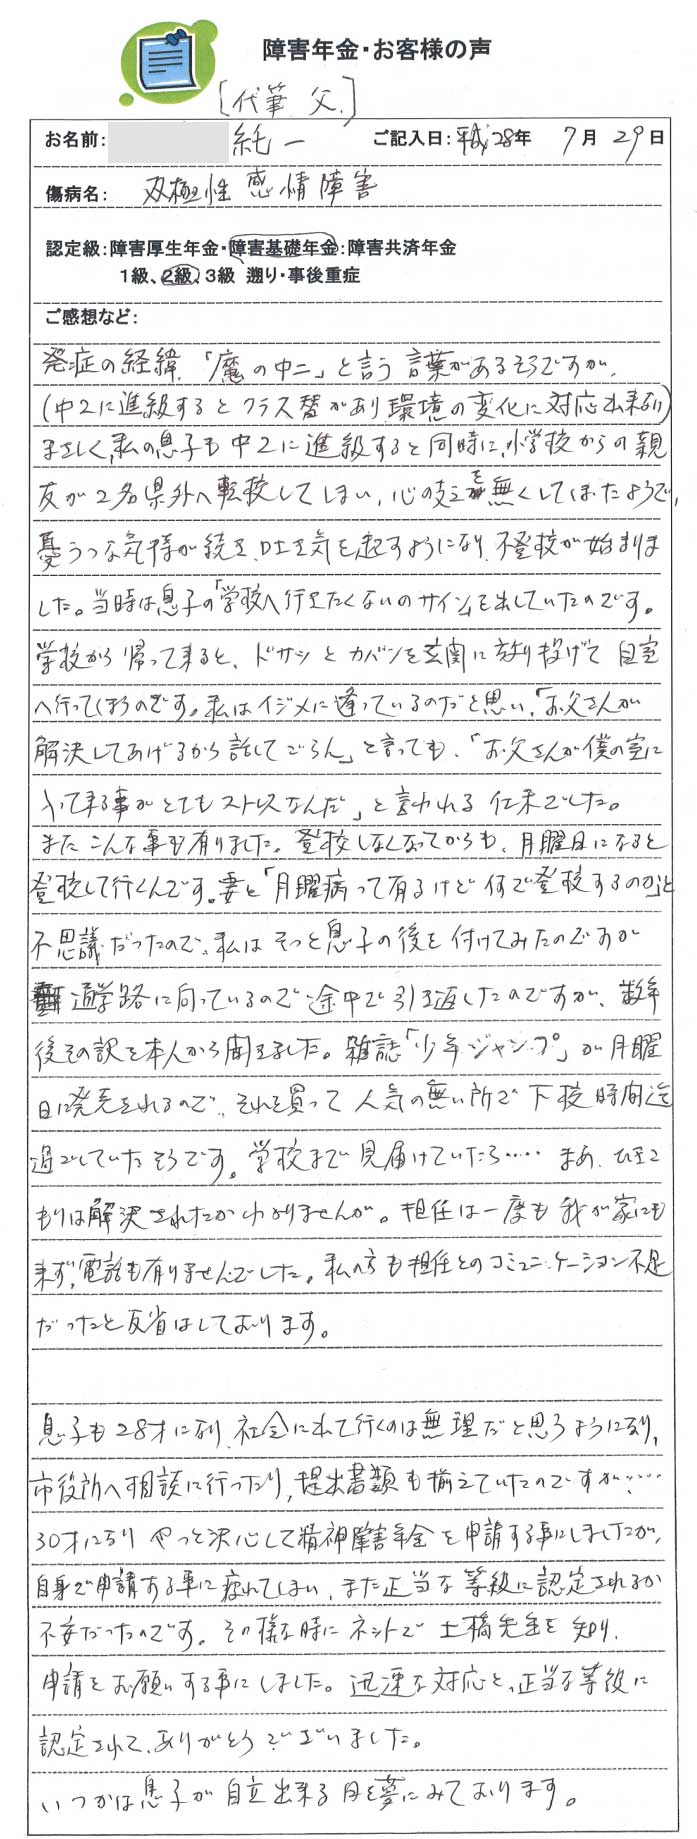 障害年金・お客様の声
[代筆 父.]
お名前: 純一 ご記入日:平成28年 7月 29日
傷病名: 双極性感情障害
認定級:障害厚生年金・障害基礎年金:障害共済年金
1級、2級、3級 遡り・事後重症
ご感想など:
発症の経緯、「魔の中二」と言う言葉があるそうですが、
(中2に進級するとクラス替があり環境の変化に対応出来ない)
まさしく、私の息子も中2に進級すると同時に、小学校からの親
友が2名県外へ転校してしまい、心の支えを無くしてしまったようで、
憂うつな気持が続き、吐き気を起すようになり、不登校が始まりま
した。当時は息子の「学校へ行きたくないのサイン」を出していたのです。
学校から帰って来ると、ドサッとカバンを玄関に放り投げて自室
へ行ってしまうのです。私はイジメに逢っているのだと思い、「お父さんが
解決してあげるから話してごらん」と言っても、「お父さんが僕の室に
入って来る事がとてもストレスなんだ」と言われる仕末でした。
またこんな事も有りました。登校しなくなってからも、月曜日になると
登校して行くんです。妻と「月曜病って有るけど何で登校するのか」と
不思議だったので、私はそっと息子の後を付けてみたのですが
通学路に向っているので途中で引き返したのですが、数年
後その訳を本人から聞きました。雑誌「少年ジャンプ」が月曜
日に発売されるので、それを買って人気の無い所で下校時間迄
過ごしていたそうです。学校まで見届けていたら・・・・・ まあ、ひきこ
もりは解決されたかわかりませんが。担任は一度も我が家にも
来ず、電話も有りませんでした。私の方も担任とのコミュニケーション不足
だったと反省はしております。
息子も28才になり、社会に出て行くのは無理だと思うようになり、
市役所へ相談に行ったり、提出書類も揃えていたのですが・・・・・
30才になりやっと決心して精神障害年金を申請する事にしましたが、
自身で申請する事に疲れてしまい、また正当な等級に認定されるか
不安だったのです。その様な時にネットで土橋先生を知り、
申請をお願いする事にしました。迅速な対応と、正当な等級に
認定されて、ありがとうございました。
いつかは息子が自立出来る日を夢にみております。